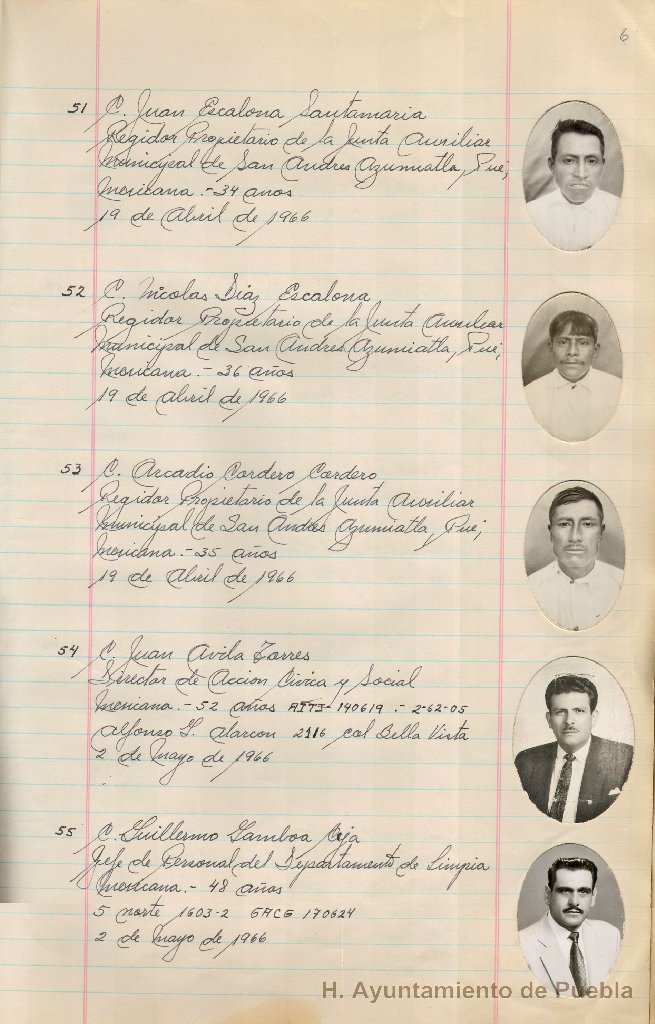 6
51 C. Juan Escalona Santamaria
Regidor Propietario de la Junta Auxiliar
Municipal de San Andres Azumiatla, Pue,
Mexicana.- 34 años
19 de Abril de 1966
52 C. Nicolas Diaz Escalona
Regidor Propietario de la Junta Auxiliar
Municipal de San Andres Azumiatla, Pue,
Mexicana.- 36 años
19 de Abril de 1966
53 C. Arcadio Cordero Cordero
Regidor Propietario de la Junta Auxiliar
Municipal de San Andres Azumiatla, Pue,
Mexicana.- 35 años
19 de Abril de 1966
54 C Juan Avila Torres
Director de Accion Civica y Social
Mexicana.- 52 años AITJ-140619 .- 2-62-05
Alfonso G. Alarcon 2116 col Bella Vista
2 de Mayo de 1966
55 C. Guillermo Gamboa Ceja
Jefe de Personal del Departamento de Limpia
Mexicana.- 48 años
5 norte 1603-2 GACG 170624
2 de Mayo de 1966
H. Ayuntamiento de Puebla